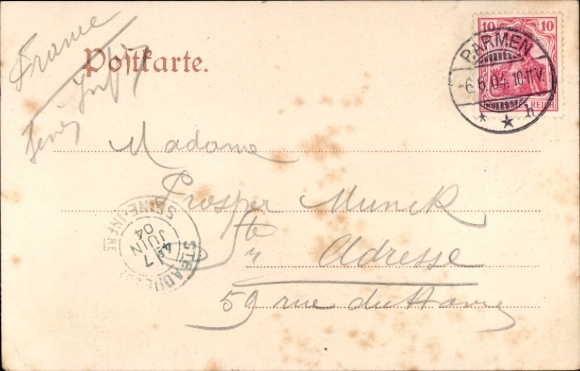 France
Postkarte.
Seine Inf.
10 10
BARMEN
-6.6.04.10-11V.
* * h
REICH
Madame
Prosper Munck
Ste
Adresse
59 rue du Havre
STE ADRESSE
SEINE-INFRE
7
JUIN
04